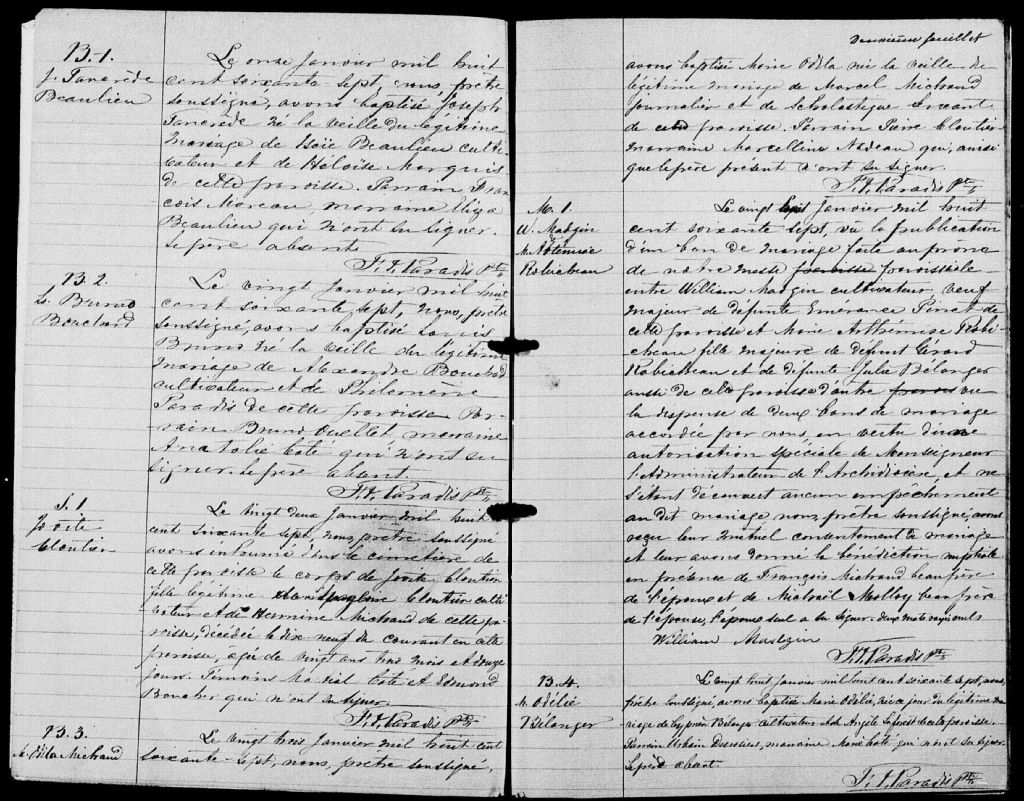 B-1.
J. Tancrède
Beaulieu
Le onze Janvier mil huit
cent soixante sept, nous, prêtre
soussigné, avons baptisé Joseph
Tancrède né la veille du légitime
mariage de Isaïe Beaulieu culti-
vateur et de Héloïse Marquis
de cette paroisse. Parrain Fran
çois Moreau, marraine Eliza
Beaulieu qui n'ont su signer.
Le père absent
F. X. Paradis Ptr
B. 2
Ls Bruno
Bouchard
Le vingt Janvier mil huit
cent soixante sept, nous, prêtre
soussigné, avons baptisé Louis
Bruno né la veille du légitime
mariage de Alexandre Bouchard
cultivateur et de Philomène
Paradis de cette paroisse Par-
rain Bruno Ouellet, marraine
Anatolie Coté qui n'ont su
signer. Le père absent.
F. X. Paradis Ptr
S. 1
Jovite
Cloutier
Le vingt deux Janvier mil huit
cent soixante sept, nous, prêtre soussigné
avons inhumé dans le cimetière de
cette paroisse le corps de Jovite Cloutier
fille légitime Cloutier culti
vateur et de Hermine Michaud de cette pa-
roisse, décédée le dix-neuf du courant en cette
paroisse, agée de vingt ans trois mois et douze
jours. Témoins Martial Coté et Edmond
Boucher qui n'ont su signer
F. X. Paradis Ptr
B. 3.
M. Odila Michaud
Le vingt trois Janvier mil huit cent
soixante-sept, nous, prêtre soussigné,
Deuxième feuillet
avons baptisé Marie Odila née la veille du
légitime mariage de Marcel Michaud
journalier et de Scholastique
de cette paroisse. Parrain Pierre Cloutier
marraine Marcelline Nadeau qui, ainsi
que le père présent n'ont su signer.
F. X. Paradis Ptr
M. 1.
W. Madgin
M. Artémise
Robicheau
Le vingt huit Janvier mil huit
cent soixante sept, vu la publication
d'un ban de mariage faite au prône
de notre messe paroisse paroissiale
entre William Madgin cultivateur veuf
majeur de défunte Emérance Perret de
cette paroisse et Marie Arthémise Robi
cheau fille majeure de défunt Gérard
Robicheau et de défunte Julie Bélanger
aussi de cette paroisse d'autre part vu
la dispense de deux bans de mariage
accordée par nous, en vertu d'une
autorisation spéciale de Monseigneur
l'Administrateur de l'Archidiocèse, et ne
s'étant découvert aucun empêchement
au dit mariage nous, prêtre soussigné, avons
reçu leur mutuel consentement de mariage
et leur avons donné la bénédiction nuptiale
en présence de François Michaud beau frère
de l'époux et de Michaël Molloy beau frère
de l'épouse, l'époux seul a su signer. deux mots rayés nuls
William Madgin
F. X. Paradis Ptr
B. 4.
M. Odélie
Bélanger
Le vingt huit Janvier mil huit cent soixante sept, nous,
prêtre soussigné, avons baptisé Marie Odélie, née ce jour du légitime ma
riage de Cyprien Bélanger cultivateur et de Angèle de cette paroisse.
Parrain Urbain marraine Marie Coté qui n'ont su signer.
Le père absent.
F. X. Paradis Ptr